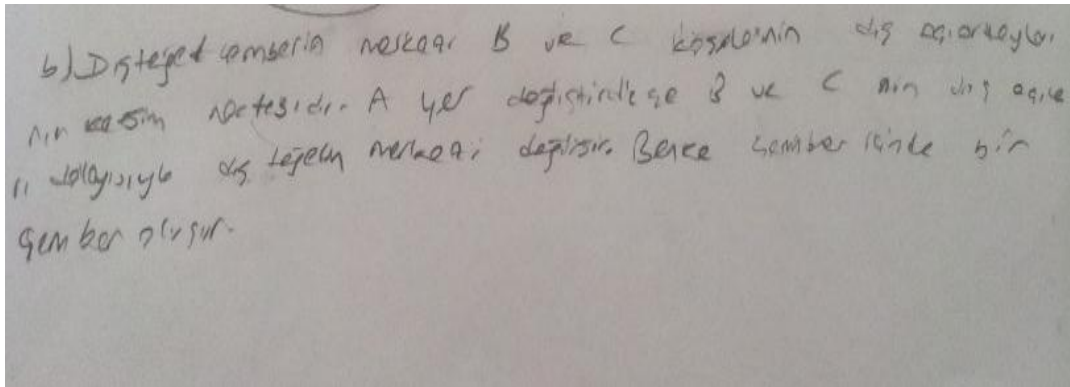 b) Dışteğet çemberin merkezi B ve C köşelerinin dış açıortayları
nın kesim noktasıdır. A yer değiştirdikçe B ve C nin dış açıla
rı dolayısıyla dış teğetin merkezi değişir. Bence çember içinde bir
çember oluşur.